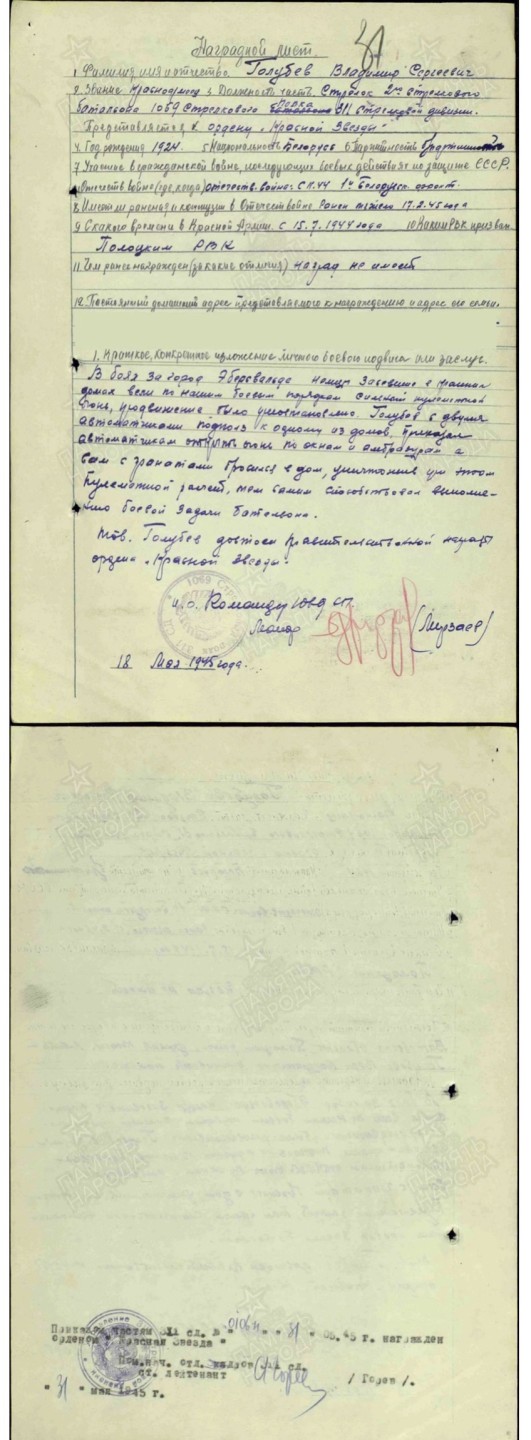 31
Наградной лист.
1. Фамилия имя и отчество Голубев Владимир Сергеевич
2. Звание Красноармеец 3. Должность часть Стрелок 2го стрелкового
батальона 1069 Стрелкового полка 311 Стрелковой дивизии.
Представляется к ордену "Красной Звезды"
4. Год рождения 1924 5 Национальность Белорус 6 Партийность
7 Участие в гражданской войне, последующих боевых действиях по защите СССР,
отечеств. войне (где, когда) отечеств. войне: с 1й Белорус. фронт.
8. Имеет ли ранения и контузии в Отечеств войне Ранен 17.2.45 года
9 С какого времени в Красной Армии. с 15.7.1944 года 10 Каким РВК призван
Полоцким РВК
11. Чем ранее награжден (за какие отличия) наград не имеет
12. Постоянный домашний адрес представляемого к награждению и адрес его семьи.
1. Краткое, конкретное изложение личного боевого подвига или заслуг.
В боях за город Эберсвальде немцы засевшие в
домах вели по нашим боевым порядкам сильный пулеметный
огонь, продвижение было Голубев с двумя
автоматчиками подполз к одному из домов, приказал
автоматчикам открыть огонь по окнам и амбразурам а
сам с гранатами бросился в дом, уничтожив при этом
пулеметной расчет, тем самым способствовал выполне-
нию боевой задачи батальона.
Тов. Голубев достоин правительственной награды
ордена "Красной Звезды".
и.о. Командир 1069 СП
Майор (Мирзаев)
18 Мая 1945 года.
ПАМЯТЬ НАРОДА
Приказом частям 311 сд. № " " 31 " 05.45 г. награжден
Орденом " Красная Звезда "
Пом.нач. отд. кадров 311 сд.
ст. лейтенант / Горев /.
" 31 " мая 1945 г.